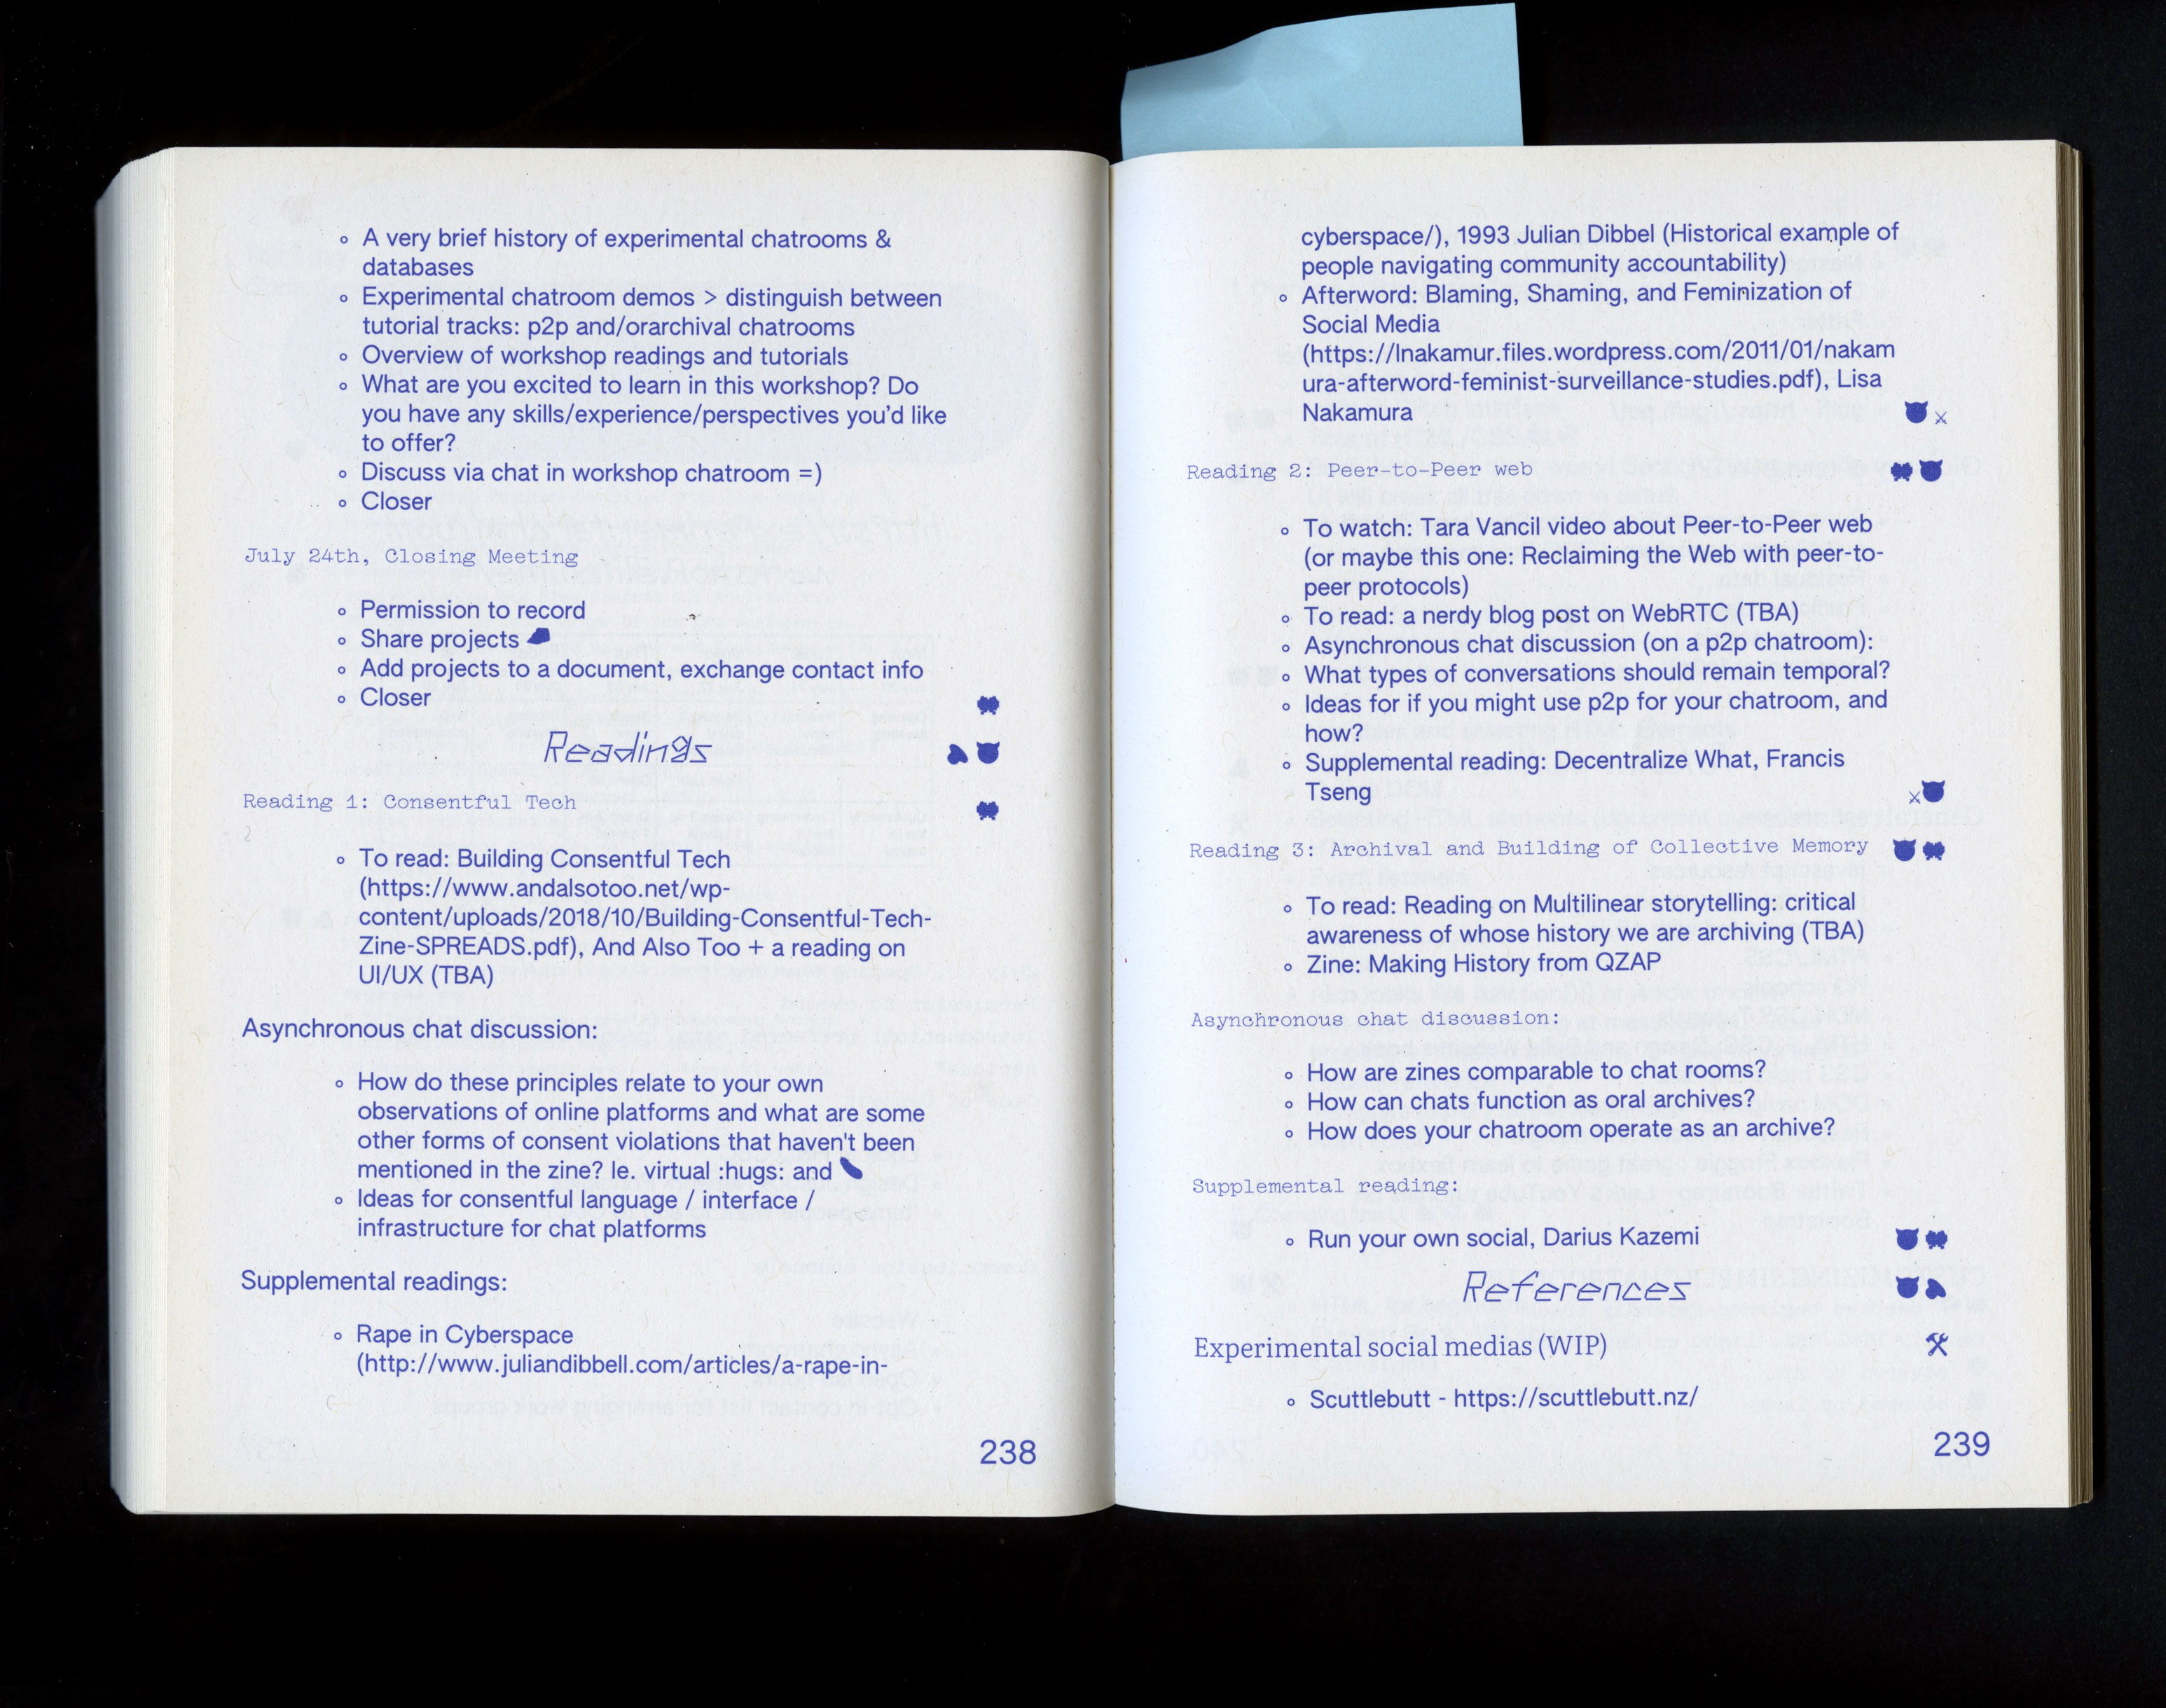 ◦ A very brief history of experimental chatrooms &
databases
◦ Experimental chatroom demos > distinguish between
tutorial tracks: p2p and/orarchival chatrooms
◦ Overview of workshop readings and tutorials
◦ What are you excited to learn in this workshop? Do
you have any skills/experience/perspectives you'd like
to offer?
◦ Discuss via chat in workshop chatroom =)
◦ Closer
July 24th, Closing Meeting
◦ Permission to record
◦ Share projects
◦ Add projects to a document, exchange contact info
◦ Closer
Readings
Reading 1: Consentful Tech
◦ To read: Building Consentful Tech
(https://www.andalsotoo.net/wp-
content/uploads/2018/10/Building-Consentful-Tech-
Zine-SPREADS.pdf), And Also Too + a reading on
UI/UX (TBA)
Asynchronous chat discussion:
◦ How do these principles relate to your own
observations of online platforms and what are some
other forms of consent violations that haven't been
mentioned in the zine? Ie. virtual :hugs: and
◦ Ideas for consentful language / interface /
infrastructure for chat platforms
Supplemental readings:
◦ Rape in Cyberspace
(http://www.juliandibbell.com/articles/a-rape-in-
238
cyberspace/), 1993 Julian Dibbel (Historical example of
people navigating community accountability)
◦ Afterword: Blaming, Shaming, and Feminization of
Social Media
(https://lnakamur.files.wordpress.com/2011/01/nakam
ura-afterword-feminist-surveillance-studies.pdf), Lisa
Nakamura
Reading 2: Peer-to-Peer web
◦ To watch: Tara Vancil video about Peer-to-Peer web
(or maybe this one: Reclaiming the Web with peer-to-
peer protocols)
◦ To read: a nerdy blog post on WebRTC (TBA)
◦ Asynchronous chat discussion (on a p2p chatroom):
◦ What types of conversations should remain temporal?
◦ Ideas for if you might use p2p for your chatroom, and
how?
◦ Supplemental reading: Decentralize What, Francis
Tseng
Reading 3: Archival and Building of Collective Memory
◦ To read: Reading on Multilinear storytelling: critical
awareness of whose history we are archiving (TBA)
◦ Zine: Making History from QZAP
Asynchronous chat discussion:
◦ How are zines comparable to chat rooms?
◦ How can chats function as oral archives?
◦ How does your chatroom operate as an archive?
Supplemental reading:
◦ Run your own social, Darius Kazemi
References
Experimental social medias (WIP)
◦ Scuttlebutt - https://scuttlebutt.nz/
239